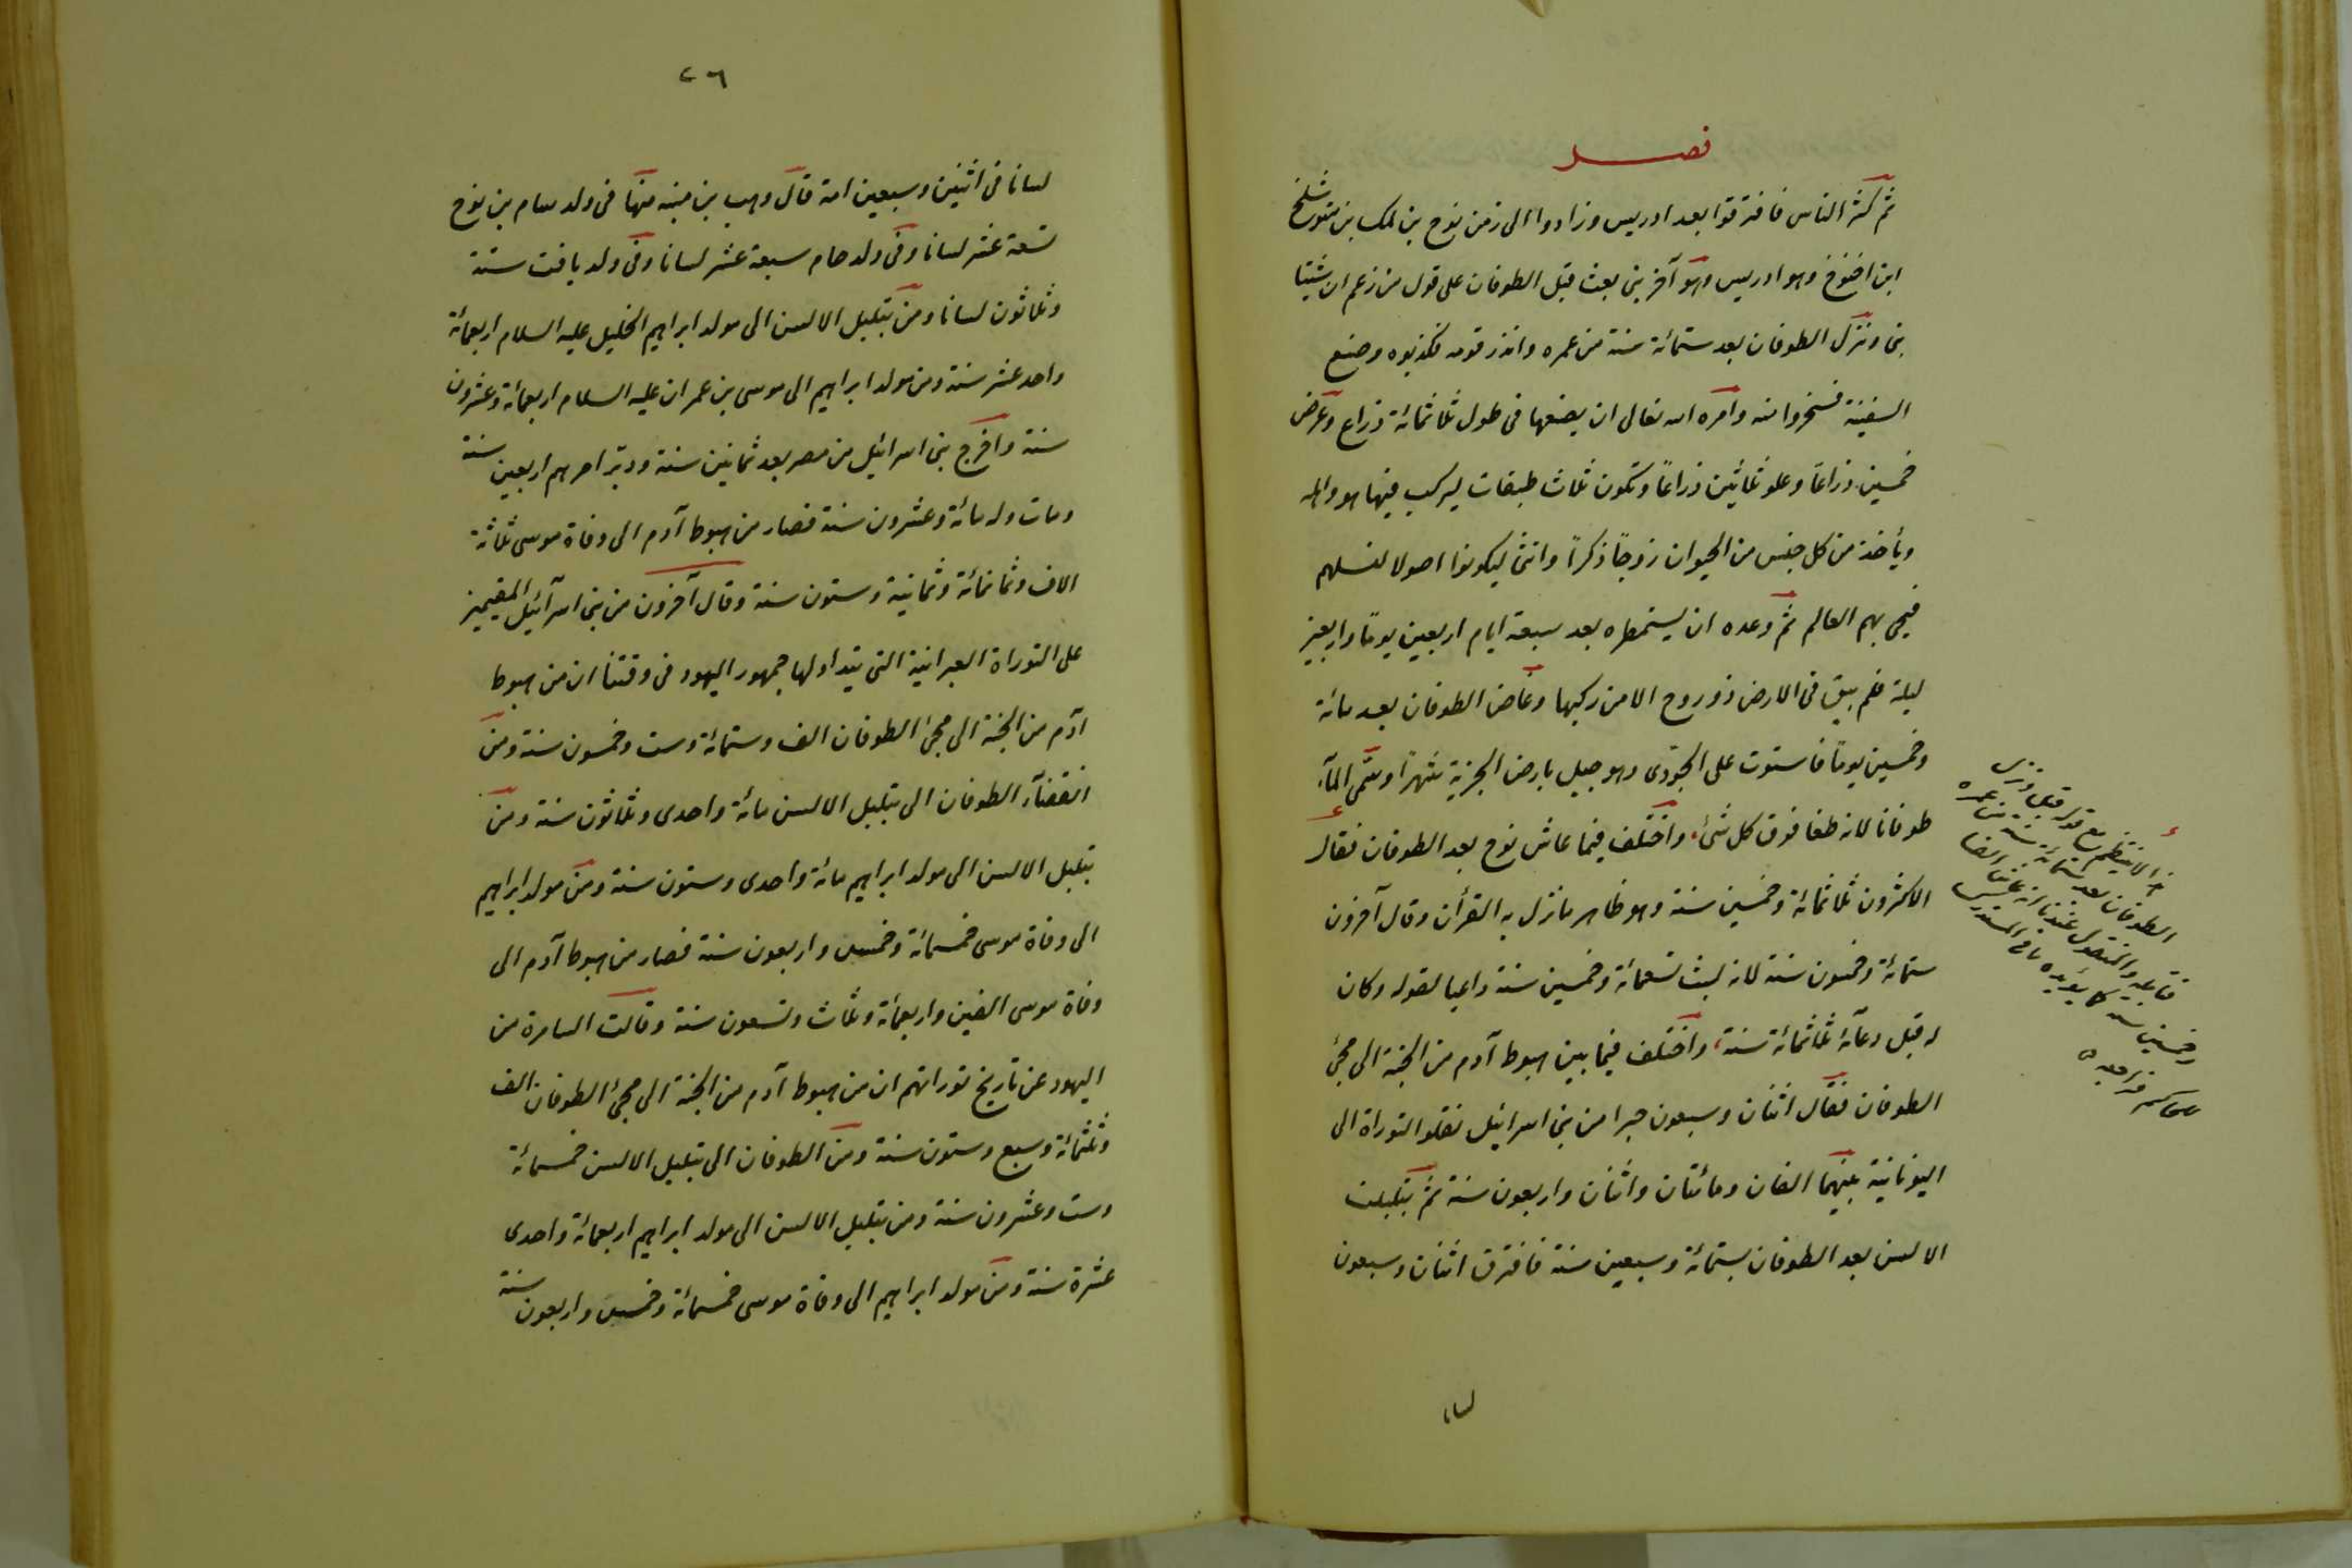 فصل
ثم كثر الناس فافترقوا بعد ادريس وزادوا الى زمن نوح بن لمك بن متوشلخ
ابن اخنوخ وهو ادريس وهو آخر نبى بعث قبل الطوفان على قول من زعم ان شيثا
نبى ونزل الطوفان بعد ستمائة سنة من عمره وانذر قومه فكذبوه وصنع
السفينة فسخروا منه وامره الله تعالى ان يصنعها فى طول ثلاثمائة ذراع وعرض
خمسين ذراعاً وعلو ثلاثين ذراعاً وتكون ثلاث طبقات ليركب فيها هو واهله
ويأخذ من كل جنس من الحيوان زوجاً ذكراً وانثى ليكونوا اصولا لنسلهم
فيحى بهم العالم ثم وعده ان يستمطره بعد سبعة ايام اربعين يوماً واربعين
ليلة فلم يبق فى الارض ذو روح الا من ركبها وغاض الطوفان بعد مائة
وخمسين يوماً فاستوت على الجودى وهو جبل بارض الجزيرة شهراً وسمى المآء
طوفانا لانه طفا فوق كل شئ واختلف فيما عاش نوح بعد الطوفان فقال
الاكثرون ثلاثمائة وخمسين سنة وهو ظاهر ما نزل به القرأن وقال آخرون
ستمائة وخمسون سنة لانه لبث تسعمائة وخمسين سنة داعيا لقوله وكان
له قبل دعآئه ثلاثمائة سنة، واختلف فيما بين هبوط آدم من الجنة الى مجئ
الطوفان فقال اثنان وسبعون حبرا من بنى اسرائيل نقلوا التوراة الى
اليونانية بينهما الفان ومائتان واثنان واربعون سنة ثم تبلبلت
الالسن بعد الطوفان بستمائة وسبعين سنة فافترق اثنان وسبعون
لسانا
لا ينتظم مع قوله قبل ونزل
الطوفان بعد ستمائة سنة من عمره
والمنقول
وخمسين سنة كما يؤيده ما فى المستدرك
للحاكم فراجعه
٢٦
لسانا فى اثنين وسبعين امة قال وهب بن منبه منها فى ولد سام بن نوح
تسعة عشر لسانا وفى ولد حام سبعة عشر لسانا وفى ولد يافث ستة
وثلاثون لسانا ومن تبلبل الالسن الى مولد ابراهيم الخليل عليه السلام اربعمائة
واحد عشر سنة ومن مولد ابراهيم الى موسى بن عمران عليه السلام اربعمائة وعشرون
سنة واخرج بنى اسرائيل من مصر بعد ثمانين سنة ودبّر امرهم اربعين سنة
ومات وله مائة وعشرون سنة فصار من هبوط آدم الى وفاة موسى ثلاثة
الاف وثمانمائة وثمانية وستون سنة وقال آخرون من بنى اسرآئيل المقيمين
على التوراة العبرانية التى يتداولها جمهور اليهود فى وقتنا ان من هبوط
آدم من الجنة الى مجئ الطوفان الف وستمائة وست وخمسون سنة ومن
انقضآء الطوفان الى تبلبل الالسن مائة واحدى وثلاثون سنة ومن
تبلبل الالسن الى مولد ابراهيم مائة واحدى وستون سنة ومن مولد ابراهيم
الى وفاة موسى خمسمائة وخمس واربعون سنة فصار من هبوط آدم الى
وفاة موسى الفين واربعمائة وثلاث وتسعون سنة وقالت السامرة من
اليهود عن تاريخ توراتهم ان من هبوط آدم من الجنة الى مجئ الطوفان الف
وثلثمائة وسبع وستون سنة ومن الطوفان الى تبلبل الالسن خمسمائة
وست وعشرون سنة ومن تبلبل الالسن الى مولد ابراهيم اربعمائة واحدى
عشرة سنة ومن مولد ابراهيم الى وفاة موسى خمسمائة وخمس واربعون سنة